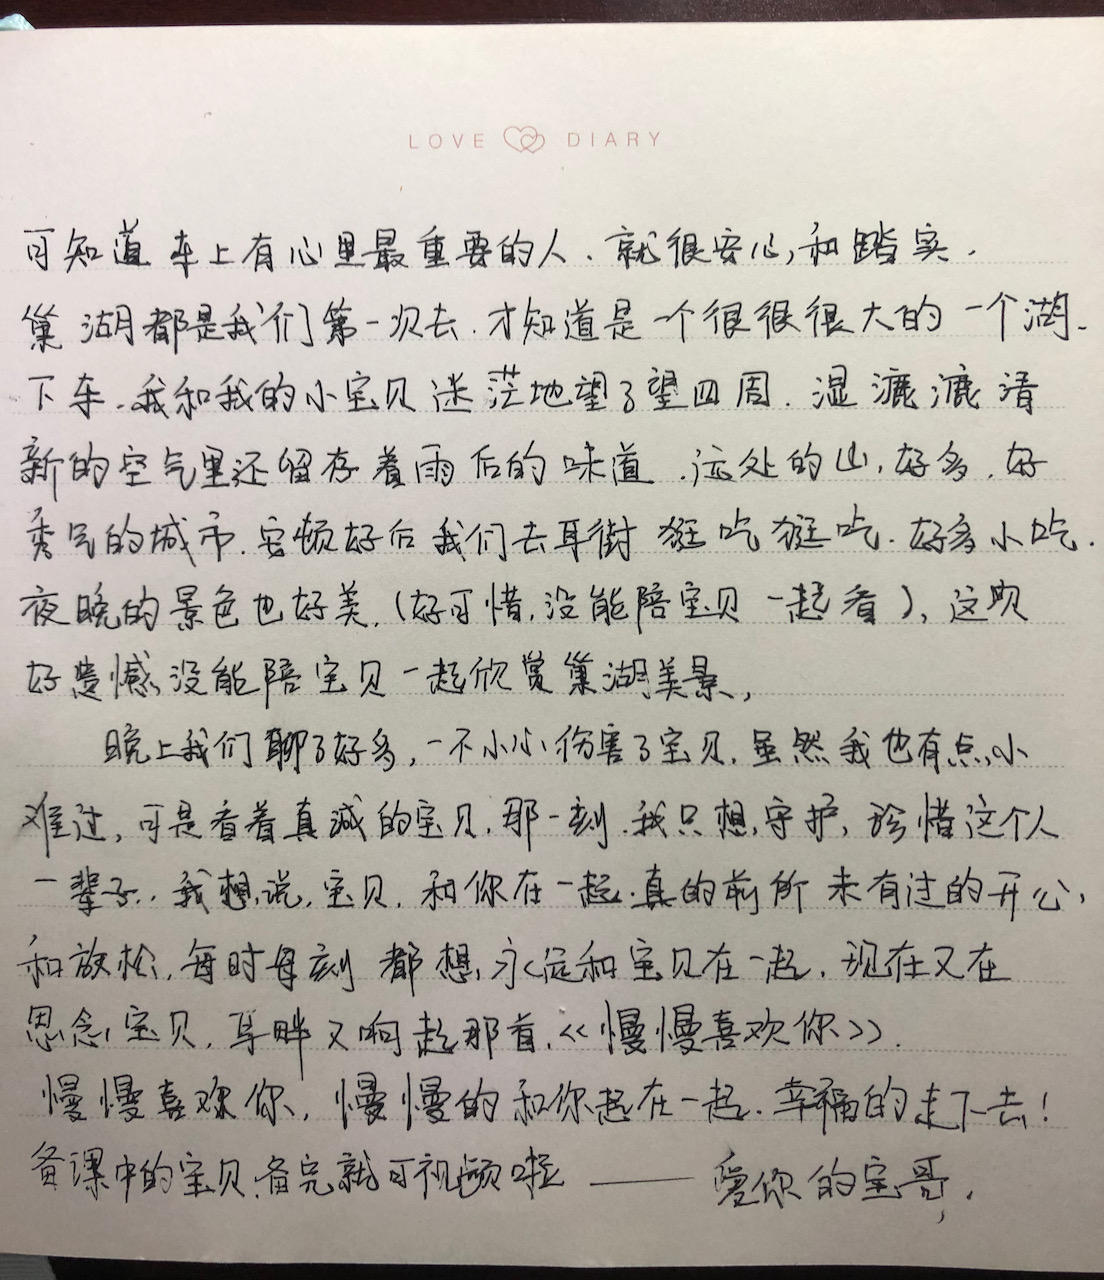 LOVE DIARY
可知道车上有心里最重要的人、就很安心,和踏实.
巢湖都是我们第一次去.才知道是一个很很很大的一个湖.
下车.我和我的小宝贝迷茫地望了望四周.湿漉漉清
新的空气里还留存着雨后的味道.远处的山,好多.好
秀气的城市.安顿好后我们去耳街逛吃逛吃.好多小吃.
夜晚的景色也好美.(好可惜,没能陪宝贝一起看),这
好遗憾,没能陪宝贝一起欣赏巢湖美景,
晚上我们聊了好多,一不小心伤害了宝贝.虽然我也有点小
难过,可是看着真诚的宝贝.那一刻.我只想守护,珍惜这个人
一辈子..我想说,宝贝.和你在一起.真的前所未有过的开心,
和放松,每时每刻都想永远和宝贝在一起.现在又在
思念宝贝,耳畔又响起那首.《慢慢喜欢你》.
慢慢喜欢你,慢慢的和你起在一起.幸福的走下去!
备课中的宝贝.备完就可视频啦——爱你的宝哥,